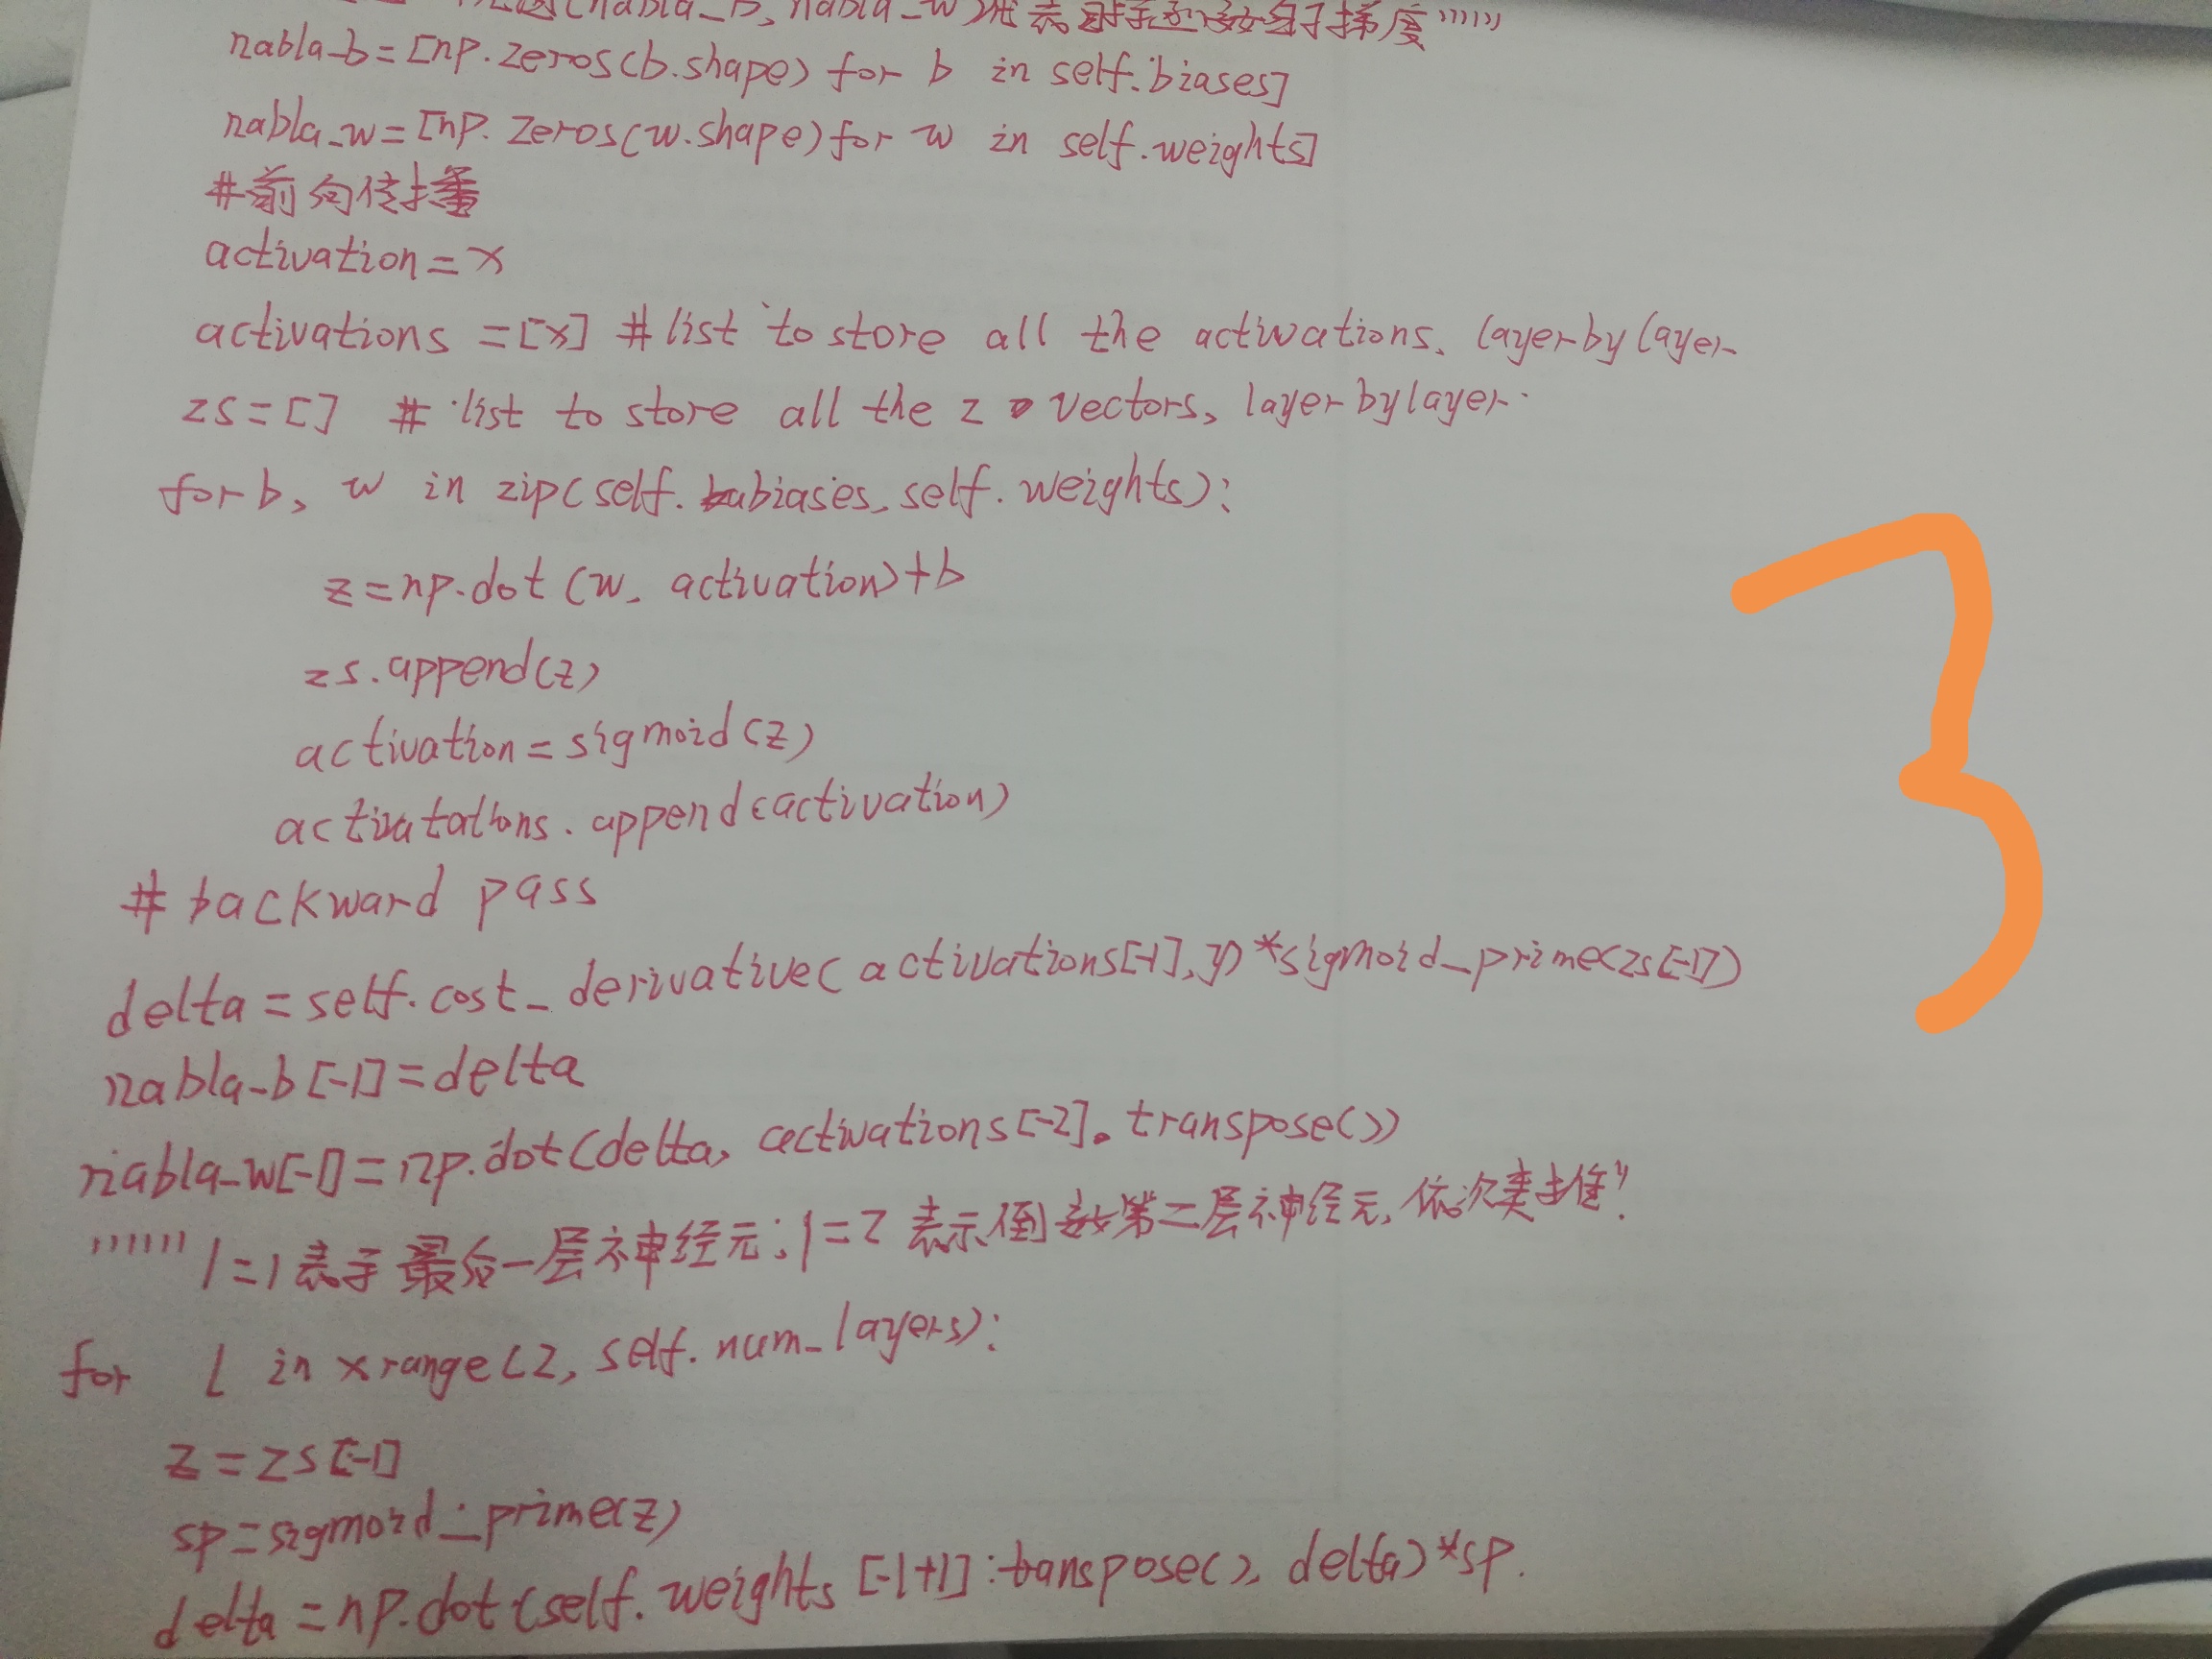 (nabla_b, nabla_w)代表对于逐数的梯度""""""
nabla_b=[np.zeros(b.shape) for b in self.biases]
nabla_w=[np.zeros(w.shape) for w in self.weights]
#前向传播
activation=x
activations=[x] #list to store all the activations, layer by layer
zs=[] # list to store all the z vectors, layer by layer.
for b, w in zip(self.biases, self.weights):
z=np.dot(w, activation)+b
zs.append(z)
activation=sigmoid(z)
activatations.append(activation)
# backward pass
delta=self.cost_derivative(activations[-1],y)*sigmoid_prime(zs[-1])
nabla_b[-1]=delta
nabla_w[-1]=np.dot(delta, activations[-2].transpose())
""""""l=1表于最后一层神经元;l=2表示倒数第二层神经元,依次类推"
for l in xrange(2, self.num_layers):
z=zs[-1]
sp=sigmoid_prime(z)
delta=np.dot(self.weights[-l+1].transpose(), delta)*sp.
3